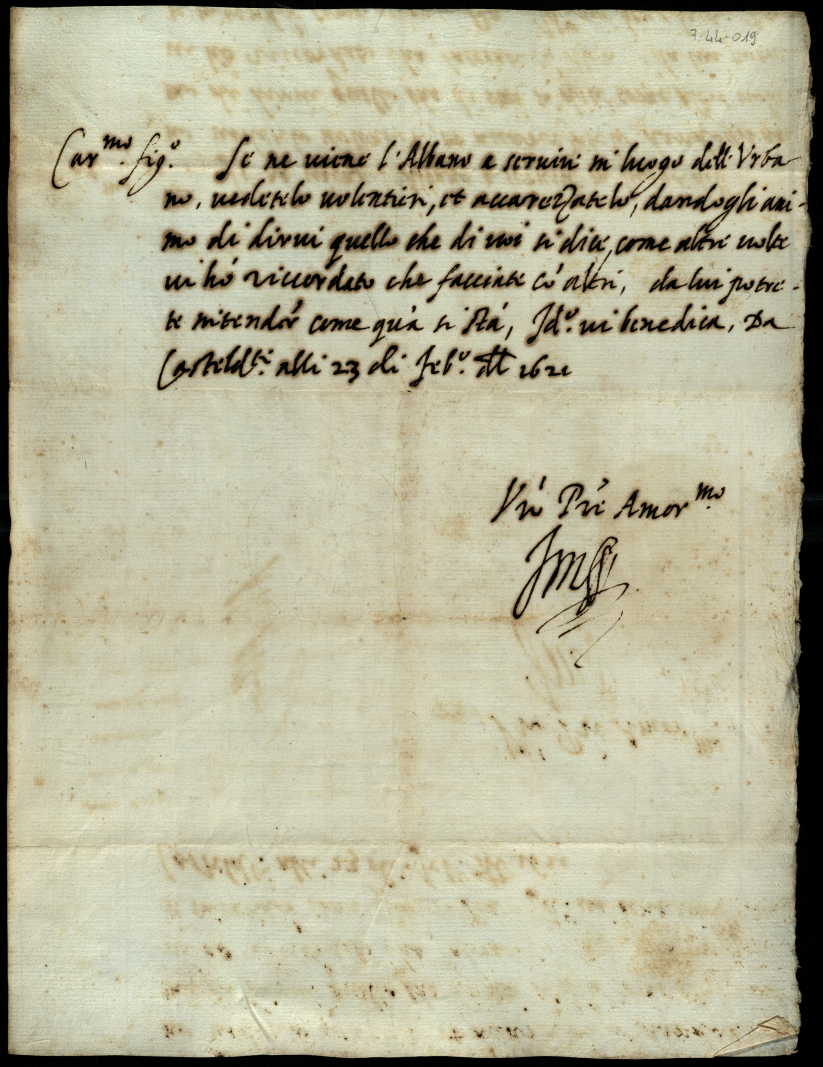 7-44-019
Car.mo fig.o Se ne viene l'Albano a servirui in luogo dell'Urba
no, vedetelo volentieri, et accarezzatelo, dandogli ani-
mo di dirvi quello che di voi si dice, come altre volte
vi hò riccordato che facciate cō altri, da lui potre-
te intender come quà si stà, Id.o vi benedica, Da
Casteld.te alli 23 di feb.o dell 1621
Vrō Prē Amor.mo